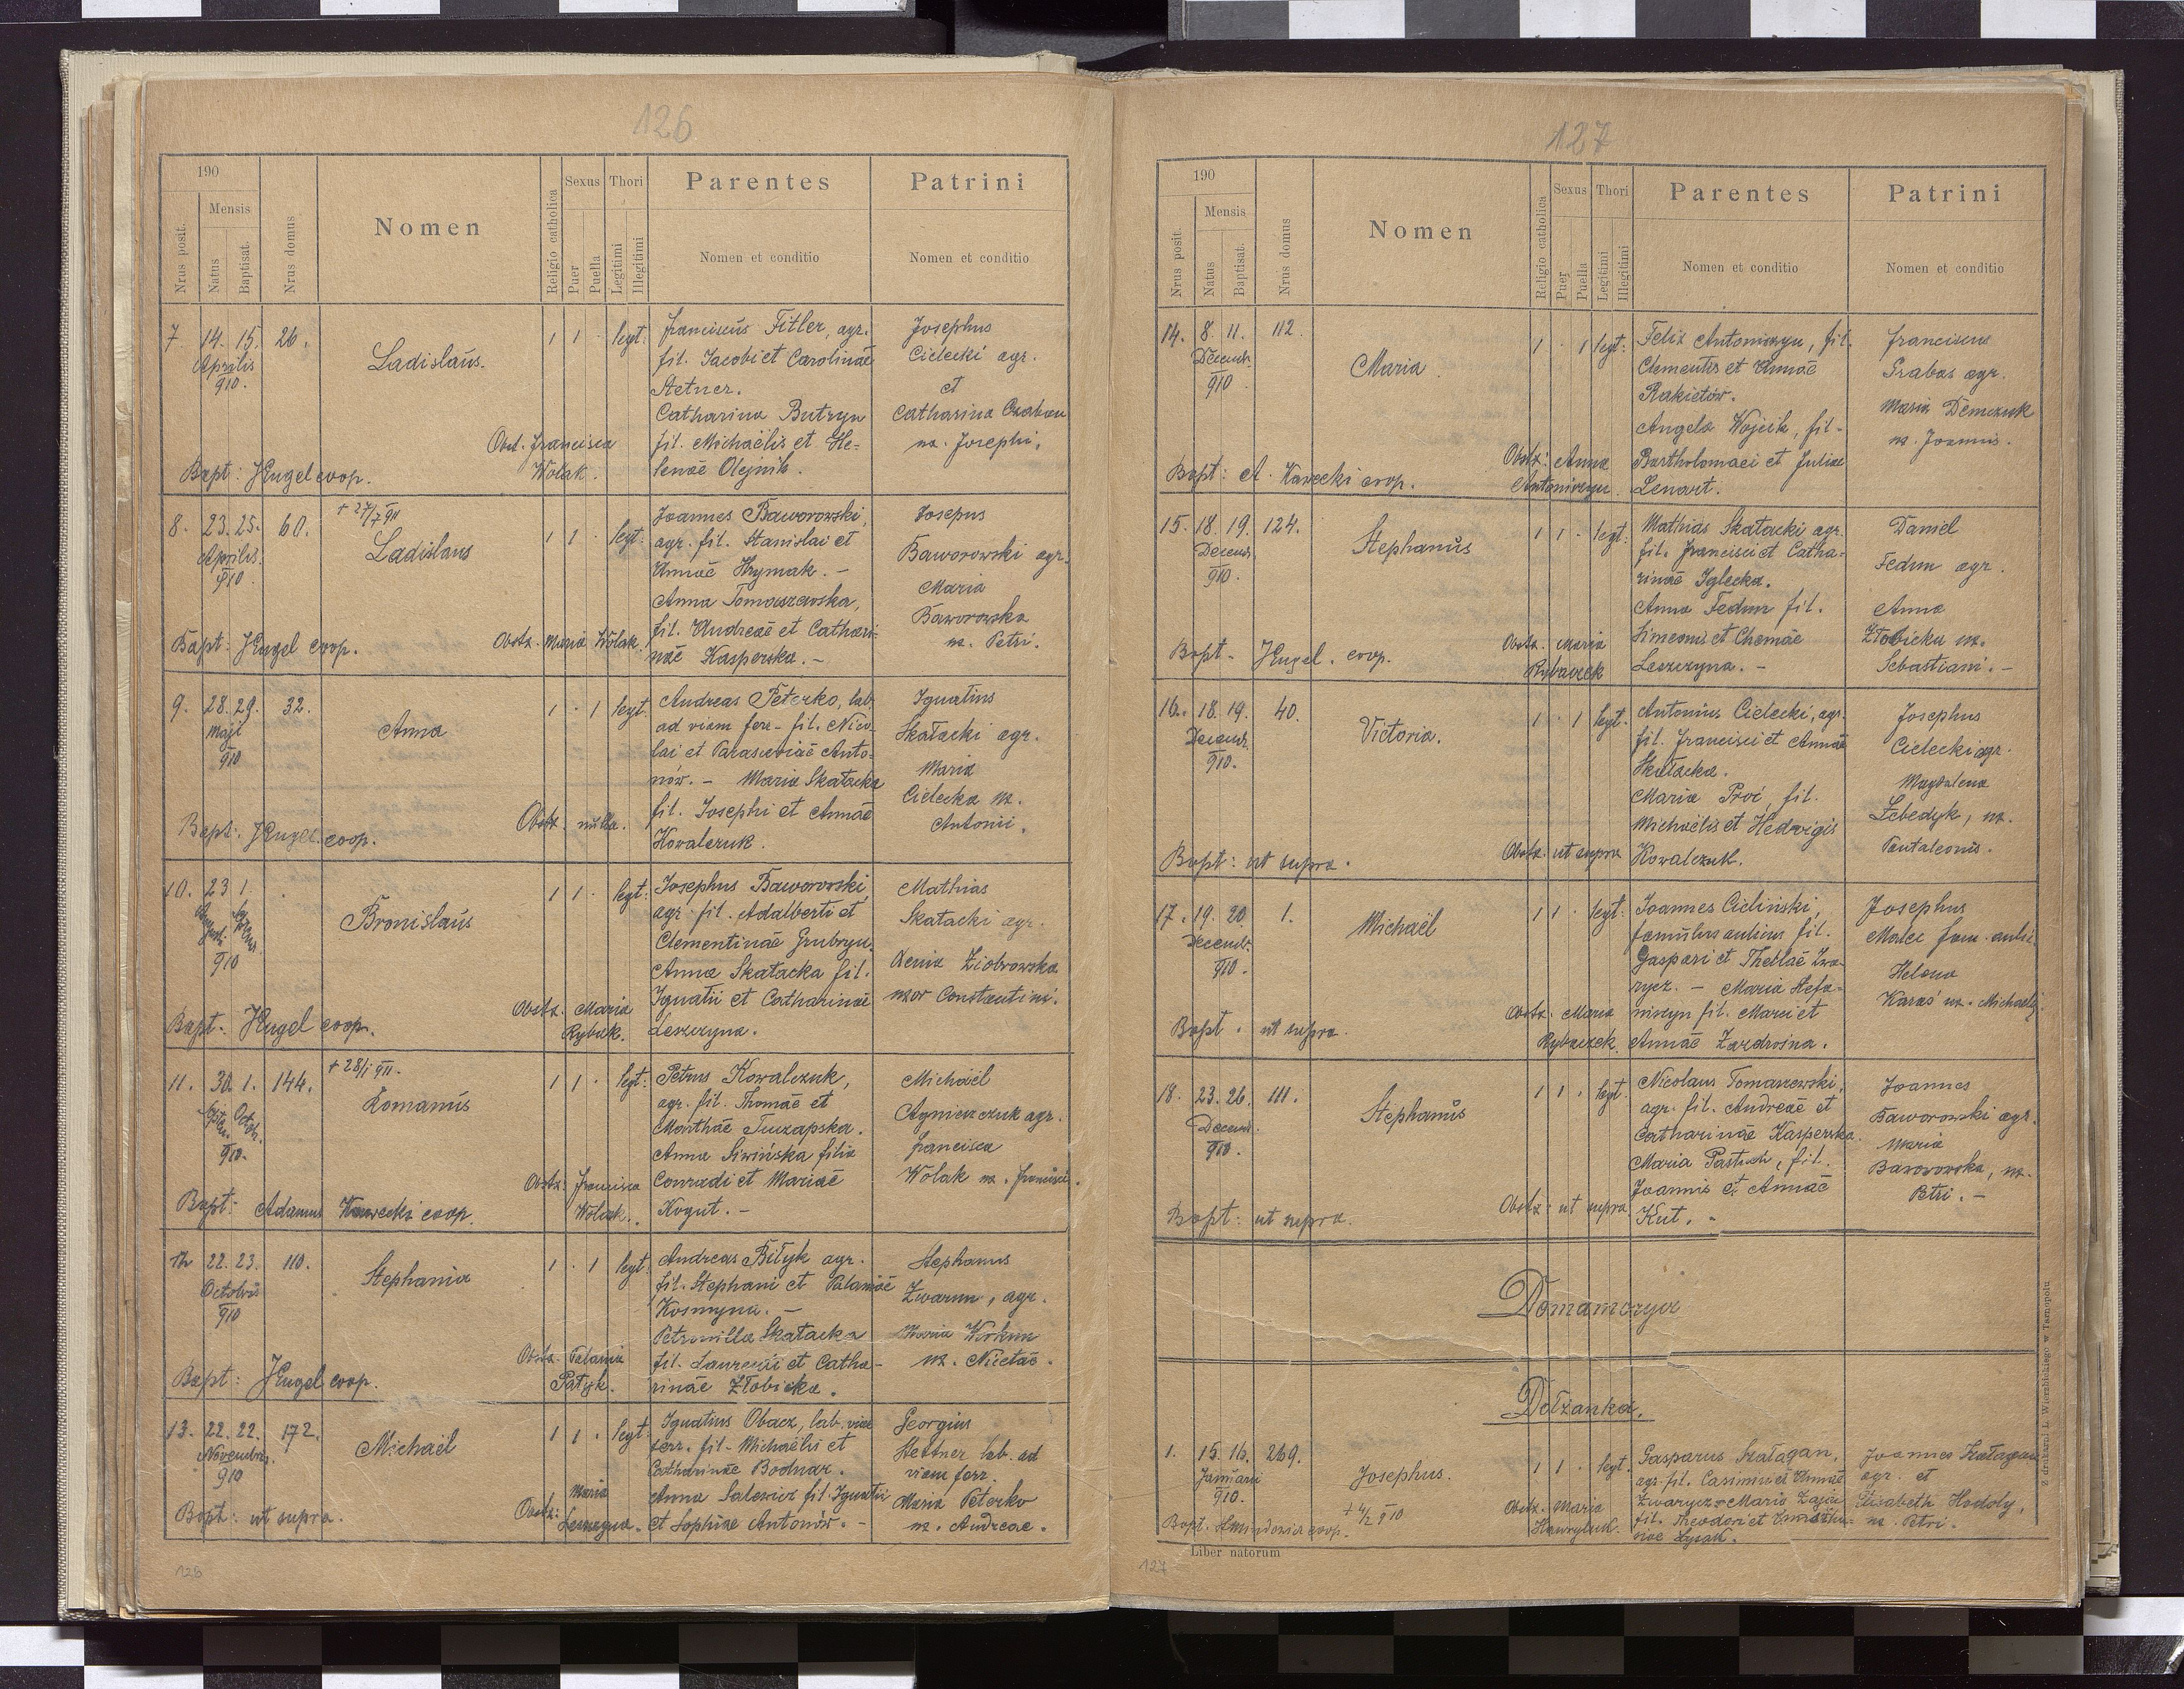 126
190
Nrus posit.
Mensis
Natus
Baptisat.
Nrus domus
Nomen
Religio catholica
Sexus
Puer
Puella
Thori
Legitimi
Illegitimi
Parentes
Nomen et conditio
Patrini
Nomen et conditio
7. 14. 15. 26.
Aprilis
910.
Ladislaus.
1 1 · legt.
Franciscus Fitler, agr.
fil. Jacobi et Carolinae
Stetner.
Catharina Butryn
fil. Michaëlis et He-
lenae Olejnik.
Josephus
Cielecki agr.
et
Catharina Czaban
ux. Josephi.
Obst. Francisca
Wolak.
Bapt: J Engel coop.
8. 23. 25. 60.
Aprilis
910.
+ 27/7 911
Ladislaus
1 1 · legt.
Joannes Baworowski,
agr. fil. Stanislai et
Annae Hrymak. -
Anna Tomaszewska,
fil. Andreae et Cathari-
nae Kasperska. -
Josepus
Baworowski agr.
Maria
Baworowska
ux. Petri.
Obstz. Maria Wolak.
Bapt: J Engel coop.
9. 28. 29. 32.
Maji
910
Anna
1 · 1 legt.
Andreas Peterko, lab.
ad viam ferr. fil. Nico-
lai et Parasceviae Anto-
nów. - Maria Skatacka
fil. Josephi et Annae
Kowalczuk.
Ignatius
Skatacki agr.
Maria
Cielecka ux.
Antonii.
Obstz. nulla.
Bapt: J Engel coop.
10. 23 1.
910
Bronislaus
1 1 · legt.
Josephus Baworowski
agr. fil. Adalberti et
Clementinae Grubryn.
Anna Skatacka fil.
Ignatii et Catharinae
Leszczyna.
Mathias
Skatacki agr.
Xenia Ziobrowska
uxor Constantini.
Obstz. Maria
Rybak.
Bapt: J Engel coop.
11. 30. 1. 144.
Octob.
910.
+ 28/1 911.
Romanus
1 1 · legt.
Petrus Kowalczuk,
agr. fil. Thomae et
Marthae Tuczapska.
Anna Siwińska filia
Conradi et Mariae
Kogut. -
Michaël
Agnieszczuk agr.
Francisca
Wolak ux. Francisci.
Obstz: Francisca
Wolak.
Bapt: Adamus Kawecki coop.
12 22. 23. 110.
Octobris
910
Stephania
1 · 1 legt.
Andreas Biłyk agr.
fil. Stephani et Palaniae
Kosmyna. -
Petronilla Skatacka
fil. Laurentii et Catha-
rinae Złobicka.
Stephanus
Zwarun, agr.
Maria Workun
ux. Nicetae.
Obstz. Palania
Patyk.
Bapt: J Engel coop.
13. 22. 22. 172.
Novembris
910
Michaël
1 1 · legt.
Ignatius Obacz, lab. viae
ferr. fil. Michaëlis et
Catharinae Bodnar.
Anna Salewicz fil. Ignatii
et Sophiae Antonów. -
Georgius
Stettner lab. ad
viam ferr.
Maria Peterko
ux. Andreae.
Maria
Obstz: Leszczyna.
Bapt: ut supra.
126
127
190
Nrus posit.
Mensis
Natus
Baptisat.
Nrus domus
Nomen
Religio catholica
Sexus
Puer
Puella
Thori
Legitimi
Illegitimi
Parentes
Nomen et conditio
Patrini
Nomen et conditio
14. 8. 11. 112.
Decemb.
910
Maria.
1 · 1 legt.
Felix Antoniszyn, fil.
Clementis et Annae
Rakietów.
Angela Wojcik, fil.
Bartholomaei et Juliae
Lenart.
Franciscus
Grabas agr.
Maria Demczuk
ux. Joannis.
Obstz: Anna
Antoniszyn.
Bapt: A. Kawecki coop.
15. 18. 19. 124.
Decemb.
910.
Stephanus
1 1 · legt.
Mathias Skatacki agr.
fil. Francisci et Catha-
rinae Iglecka.
Anna Fedun fil.
Simeonis et Chemae
Leszczyna. -
Daniel
Fedun agr.
Anna
Złobicka ux.
Sebastiani. -
Obstz. Maria
Rybaczek
Bapt - J Engel. coop.
16. 18. 19. 40.
Decemb.
910.
Victoria.
1 · 1 legt.
Antonius Cielecki, agr.
fil. Francisci et Annae
Skatacka.
Maria Proć, fil.
Michaëlis et Hedwigis
Kowalczuk.
Josephus
Cielecki agr.
Magdalena
Lebedyk, ux.
Pantaleonis.
Obstz. ut supra
Bapt: ut supra.
17. 19. 20. 1.
Decemb.
910.
Michaël
1 1 · legt.
Joannes Cieliński,
famulus aulicus fil.
Gaspari et Theklae Zwa-
rycz. - Maria Stefa-
niszyn fil. Marci et
Annae Zazdrosna.
Josephus
Malec fam. aulic.
Helena
Karaś ux. Michaëlis.
Obstz. Maria
Rybaczek.
Bapt. ut supra.
18. 23. 26. 111.
Decemb.
910.
Stephanus
1 1 · legt.
Nicolaus Tomaszewski,
agr. fil. Andreae et
Catharinae Kasperska.
Maria Pastuch, fil.
Joannis et Annae
Kut. -
Joannes
Baworowski agr.
Maria
Baworowska, ux.
Petri. -
Obstz: ut supra
Bapt: ut supra.
Domamorycz
Dołżanka.
1. 15. 16. 269.
Januarii
910.
Josephus.
+ 4/2 910
1 1 · legt.
Gasparus Szatagan,
agr. fil. Casimiri et Annae
Zwarycz - Maria Zając
fil. Theodori et
Łysak.
Joannes Szatagan
agr. et
Elisabeth Hodoly,
ux. Petri.
Obstz. Maria
Hawryluk.
Liber natorum
Z drukarni L. Wierzbickiego w Tarnopolu
127